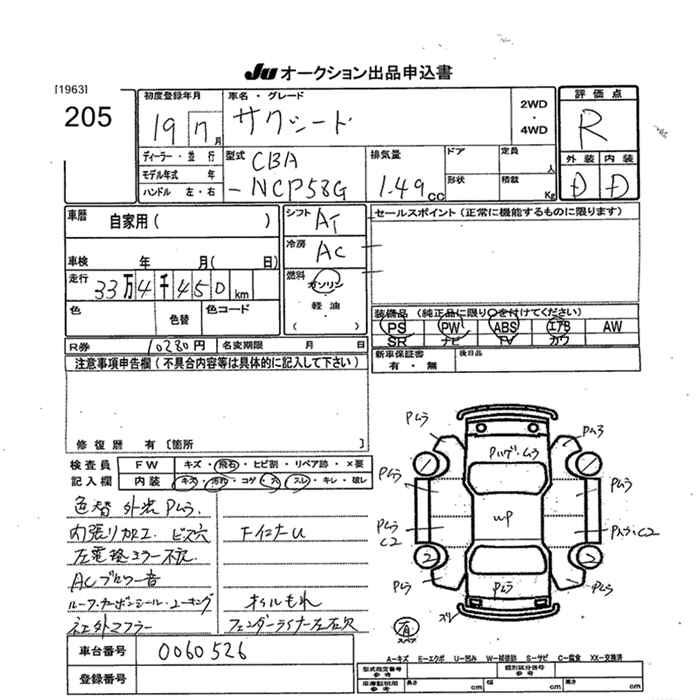 JU オークション出品申込書
[1963]
205
初度登録年月
19 7月
車名・グレード
サクシード
2WD
・
4WD
評価点
R
外装 内装
D D
ディーラー・並行
モデル年式 年
ハンドル 左・右
型式
CBA
-NCP58G
排気量
1.49cc
ドア
形状
定員 人
積載 Kg
車歴 自家用( )
シフト AT
冷房 AC
燃料
ガソリン
・
軽油
・
( )
セールスポイント(正常に機能するものに限ります)
車検 年 月( 日)
走行 33万4千450km
色 色替 色コード
装備品(純正品に限り○を付けてください)
PS PW ABS エアB AW
SR ナビ TV カワ
R券 10280円 名変期限 月 日
新車保証書
有・無
後日品
注意事項申告欄(不具合内容等は具体的に記入して下さい)
修復歴 有[箇所 ]
検査員
記入欄
FW キズ・飛石・ヒビ割・リペア跡・×要
内装 キズ・汚れ・コゲ・穴・スレ・キレ・破レ
色替 外装Pムラ
内張リカエ. ビス穴
左電格ミラー不良
ACブロワー音
ルーフ・カーボンシール・コーキング
社外マフラー
オイルもれ
フェンダーライナー左右欠
Pムラ
Pムラ
Pムラ
Pムラ
WP
Pムラ
C2
Pムラ
Pムラ
Pムラ
有
スペア
車台番号 0060526
登録番号
A=キズ E=エクボ U=凹み W=補修跡 S=サビ C=腐食 XX=交換済
型式指定番号
参考
類別区分番号
参考
車庫証明用
参考
長さ cm 幅 cm 高さ cm